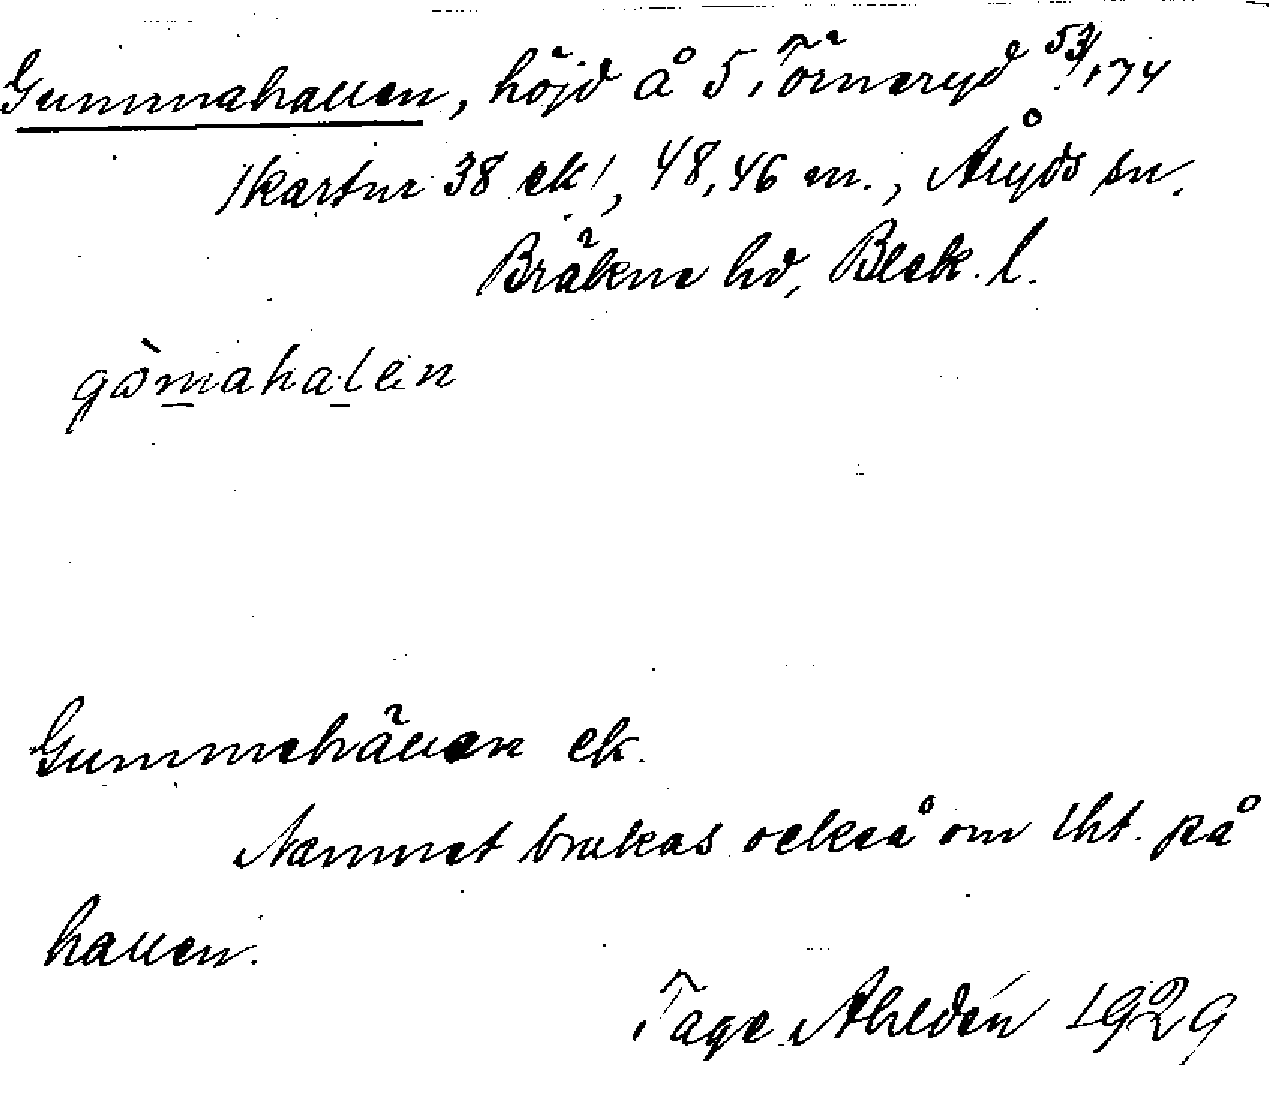 Gummahallen, höjd å 5 Törneryd 53/174
/kartur 38 ek/, 48,46 m., Åryds sn.
Bräkne hd, Blek. l.
gòmahalen
Gummehällen ek.
Namnet brukas också om lht. på
hallen.
Tage Ahldén 1929